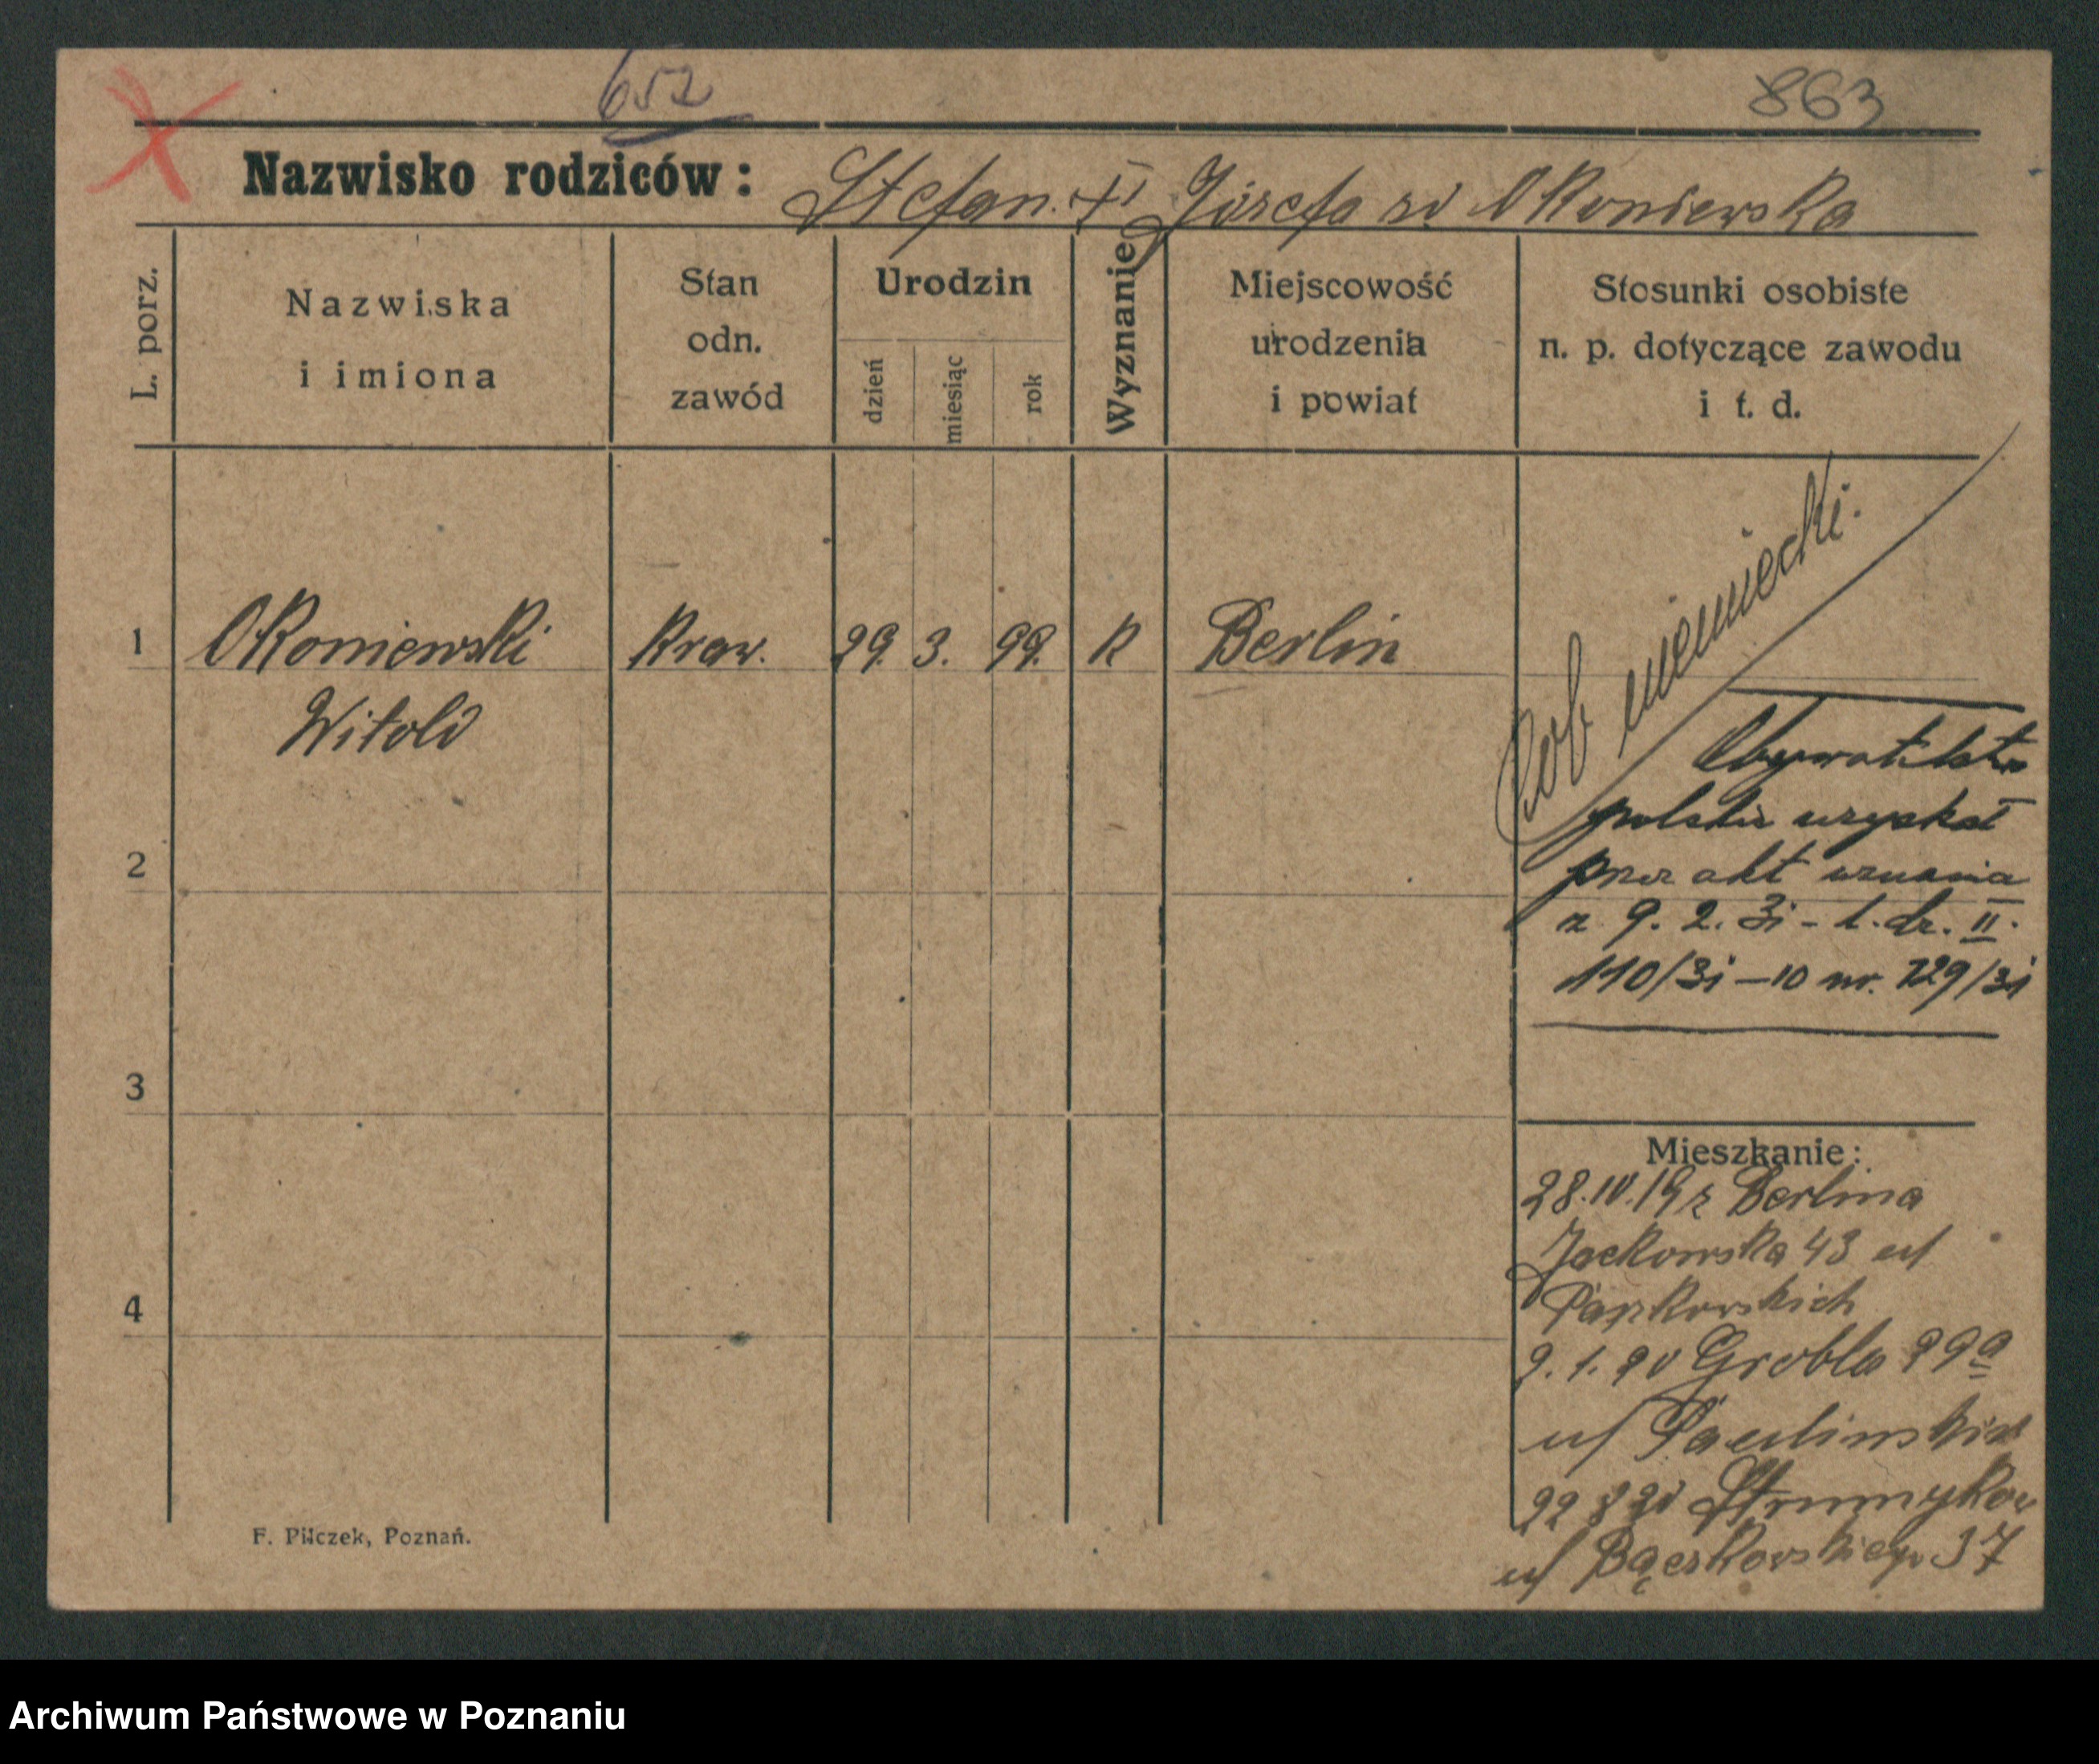 652
863
Nazwisko rodziców: Stefan i Józefa zd Okoniewska
L. porz.
Nazwiska
i imiona
Stan
odn.
zawód
Urodzin
dzień
miesiąc
rok
Wyznanie
Miejscowość
urodzenia
i powiat
Stosunki osobiste
n. p. dotyczące zawodu
i t. d.
1 Okoniewski Kraw. 29. 3. 99. K Berlin
Witold
niemiecki.
Obywatelstwo
polskie uzyskał
przez akt uznania
z 9. 2. 31 - l. dz. II.
110/31 - 10 nr. 729/31
2
3
4
Mieszkanie:
28.10.19 z Berlina
Jackowska 43 u/
9.1.20 Grobla 29a
u/ Paulinskich
Strumykowa
u/ Bączkowskiego 37
F. Pilczek, Poznań.
Archiwum Państwowe w Poznaniu